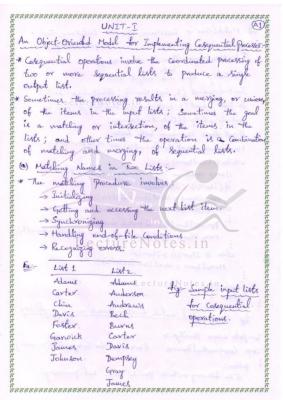 UNIT-I
A1
An Object-Oriented Model for Implementing Cosequential Processes:-
* Cosequential operations involve the coordinated processing of
two or more sequential lists to produce a single
output list.
* Sometimes the processing results in a merging, or union
of the items in the input lists; Sometimes the goal
is a matching or intersection, of the items in the
lists; and other times the operation is a Combination
of matching and merging, of sequential lists.
(a) Matching Names in Two Lists:-
* The matching Procedure involves
→ Initializing
→ Getting and accessing the next list item
→ Synchronizing
→ Handling end-of-file conditions
→ Recognizing errors
LectureNotes.in
Ex:-
List 1 List 2
Adams Adams
Carter Anderson
Chin Andrews
Davis Bech
Foster Burns
Garwick Carter
James Davis
Johnson Dempsey
Gray
James
fig:- Sample input lists
for Cosequential
operations.